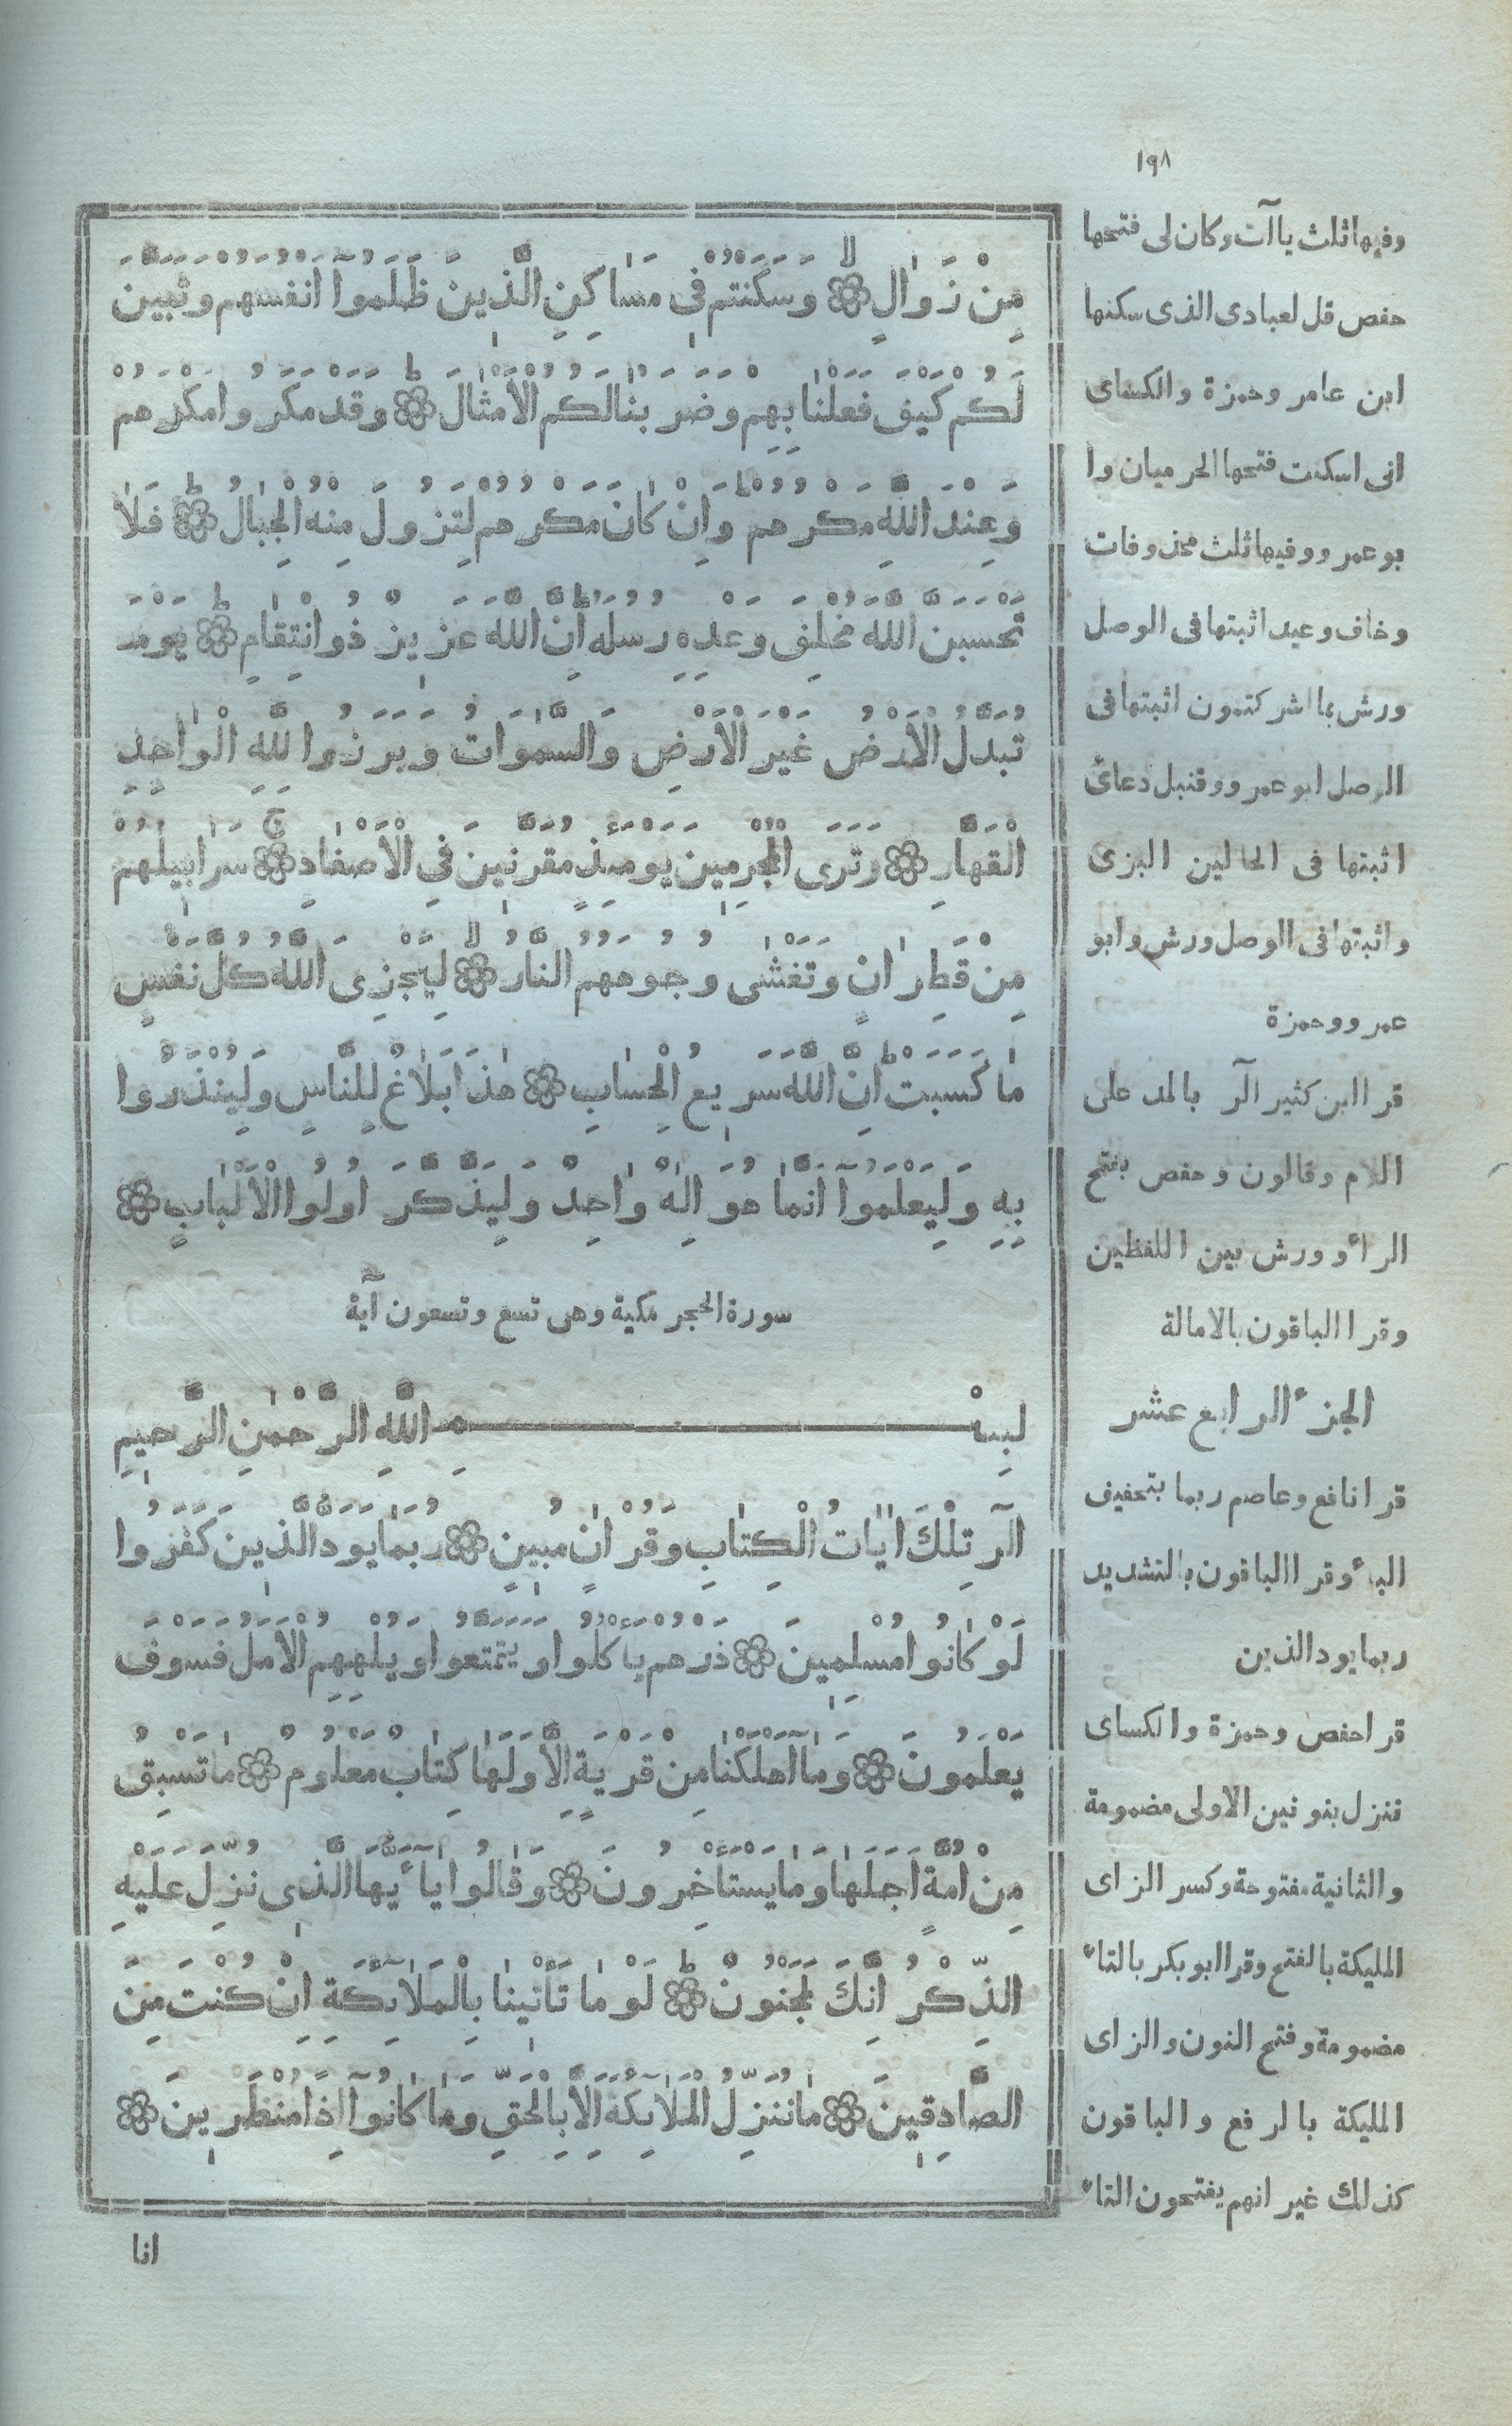 ١٩٨
مِنْ زَوٰالٍ ۞ وَسَكَنْتُمْ فِى مَسٰاكِنِ الَّذِينَ ظَلَمُوآا اَنْفُسَهُمْ وَتَبَيَّنَ
لَكُمْ كَيْفَ فَعَلْنٰا بِهِمْ وَضَرَبْنٰا لَكُمُ الْاَمْثٰالَ ۞ وَقَدْ مَكَرُوا مَكْرَهُمْ
وَعِنْدَ اللّٰهِ مَكْرُهُمْ ط وَاِنْ كٰانَ مَكْرُهُمْ لِتَزُولَ مِنْهُ الْجِبٰالُ ۞ فَلاٰ
تَحْسَبَنَّ اللّٰهَ مُخْلِفَ وَعْدِهِ رُسُلَهُ ط اِنَّ اللّٰهَ عَزِيزٌ ذُو انْتِقٰامٍ ۞ يَوْمَ
تُبَدَّلُ الْاَرْضُ غَيْرَ الْاَرْضِ وَالسَّمٰوَاتُ وَبَرَزُوا لِلّٰهِ الْوٰاحِدِ
الْقَهّٰارِ ۞ وَتَرَى الْمُجْرِمِينَ يَوْمَئِذٍ مُقَرَّنِينَ فِى الْاَصْفٰادِ ۞ سَرٰابِيلُهُمْ
مِنْ قَطِرٰانٍ وَتَغْشٰى وُجُوهَهُمُ النّٰارُ ۞ لِيَجْزِىَ اللّٰهُ كُلَّ نَفْسٍ
مٰا كَسَبَتْ ط اِنَّ اللّٰهَ سَرِيعُ الْحِسٰابِ ۞ هٰذَا بَلاٰغٌ لِلنّٰاسِ وَلِيُنْذَرُوا
بِهِ وَلِيَعْلَمُوآا اَنَّمٰا هُوَ اِلٰهٌ وٰاحِدٌ وَلِيَذَّكَّرَ اُولُوا الْاَلْبٰابِ ۞
سورة الحجر مكية وهى تسع وتسعون آية
بِسْمِ اللّٰهِ الرَّحْمٰنِ الرَّحِيمِ
الٓرٰ تِلْكَ اٰيٰاتُ الْكِتٰابِ وَقُرْاٰنٍ مُبِينٍ ۞ رُبَمٰا يَوَدُّ الَّذِينَ كَفَرُوا
لَوْ كٰانُوا مُسْلِمِينَ ۞ ذَرْهُمْ يَاْكُلُوا وَيَتَمَتَّعُوا وَيُلْهِهِمُ الْاَمَلُ فَسَوْفَ
يَعْلَمُونَ ۞ وَمٰآ اَهْلَكْنٰا مِنْ قَرْيَةٍ اِلاَّ وَلَهٰا كِتٰابٌ مَعْلُومٌ ۞ مٰا تَسْبِقُ
مِنْ اُمَّةٍ اَجَلَهٰا وَمٰا يَسْتَاْخِرُونَ ۞ وَقٰالُوا يٰآ ءَيُّهَا الَّذِى نُزِّلَ عَلَيْهِ
الذِّكْرُ اِنَّكَ لَمَجْنُونٌ ۞ لَوْ مٰا تَاْتِينٰا بِالْمَلاٰئِكَةِ اِنْ كُنْتَ مِنَ
الصّٰادِقِينَ ۞ مٰا نُنَزِّلُ الْمَلاٰئِكَةَ اِلاَّ بِالْحَقِّ وَمٰا كٰانُوآا اِذًا مُنْظَرِينَ ۞
انا
وفيها ثلث ياآت وكان لى فتحها
حفص قل لعبادى الذى سكنها
ابن عامر وحمزة والكساى
انى اسكنت فتحها الحرميان وا
بو عمرو وفيها ثلث محذوفات
وخاف وعيد اثبتها فى الوصل
ورش بما اشركتمون اثبتها فى
الوصل ابو عمرو وقنبل دعائ
اثبتها فى الحالين البزى
واثبتها فى الوصل ورش وابو
عمرو وحمزة
قرا ابن كثير الٓر بالمد على
اللام وقالون وحفص بفتح
الراء وورش بين اللفظين
وقرا الباقون بالامالة
الجزء الرابع عشر
قرا نافع وعاصم ربما بتخفيف
الباء وقرا الباقون بالتشديد
ربما يود الذين
قرا حفص وحمزة والكساى
ننزل بنونين الاولى مضمومة
والثانية مفتوحة وكسر الزاى
المليكة بالفتح وقرا ابو بكر بالتاء
مضمومة وفتح النون والزاى
المليكة بالرفع والباقون
كذلك غير انهم يفتحون التاء